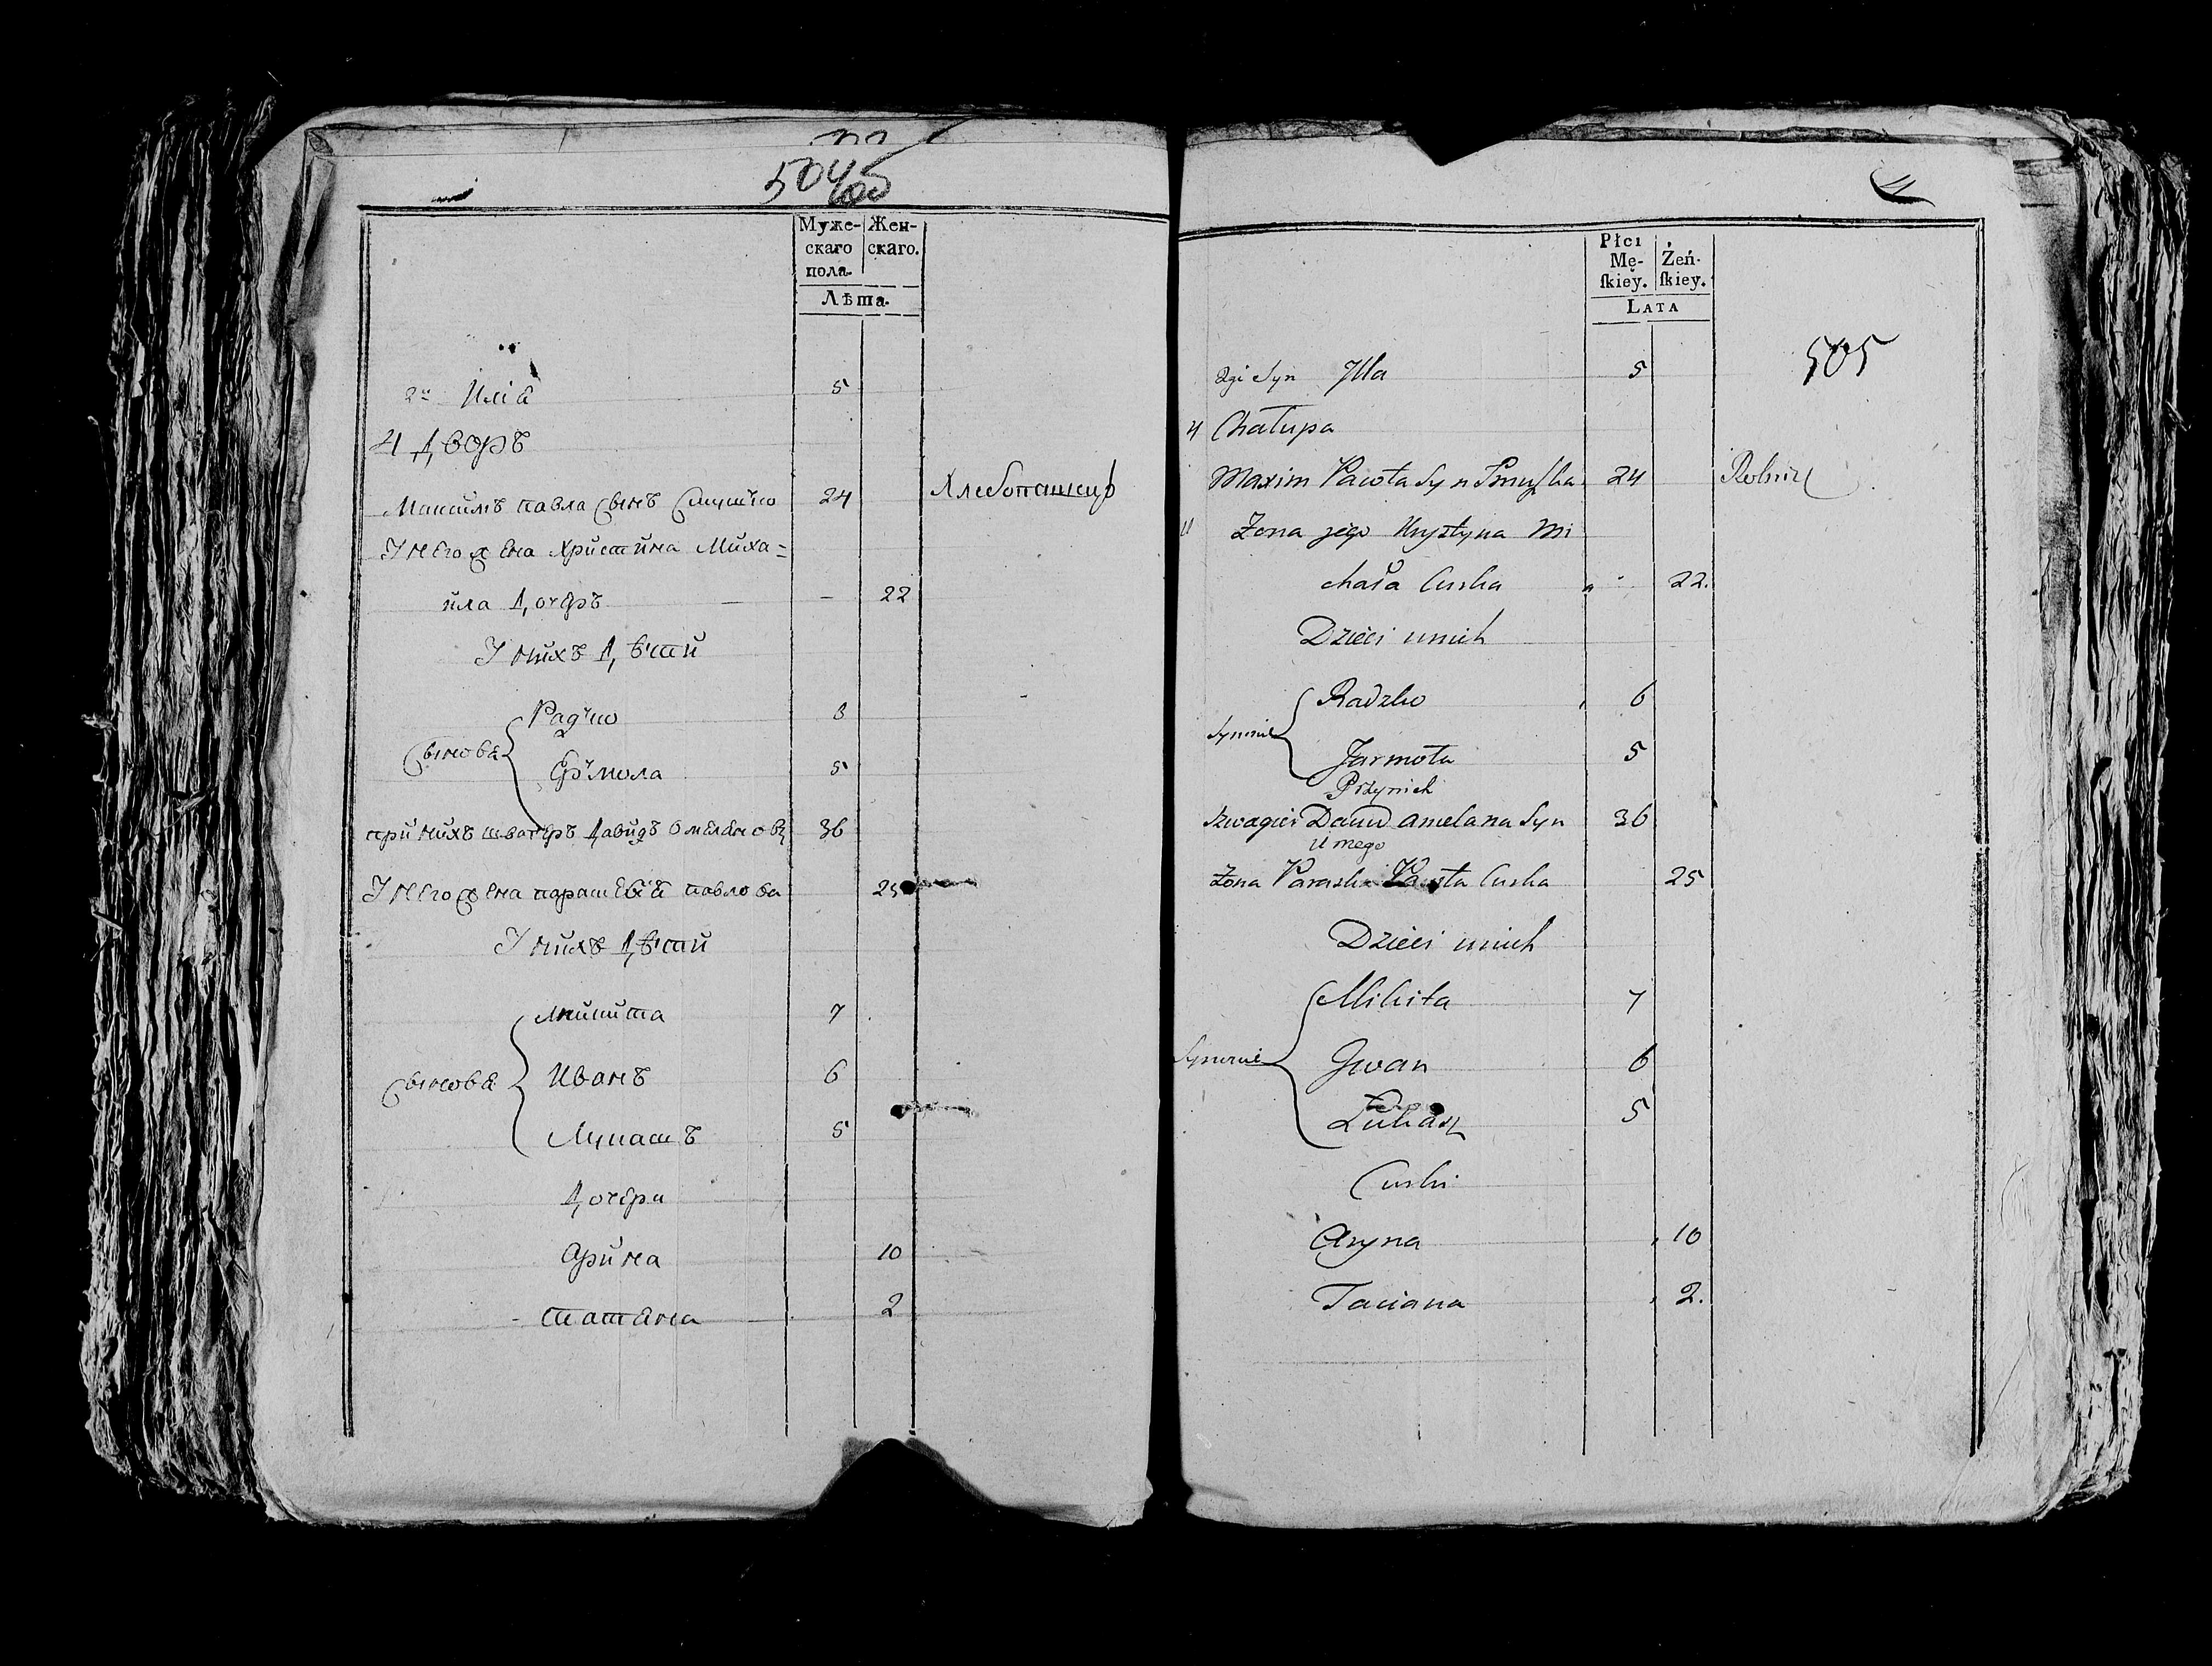 504
505
Муже-
скаго
пола.
Жен-
скаго.
Лѣта.
2й Иліа 5
4 Дворъ
Максимъ павла сынъ Смушко 24 Хлебопашецъ
У него жена Христина Миха=
йла дочеръ — 22
У нихъ дѣти
сынове
Радько 8
Ерьмола 5
при нихъ швагеръ Давидъ Омелянов 36
У него жена парасквия павлова 25
У нихъ дѣти
сынове
Микита 7
Иванъ 6
Лукашъ 5
Дочери
Арина 10
Татяна 2
Płci
Mę-
ſkiey.
Żeń-
ſkiey.
LATA
505
2gi Syn Jlla 5
4 Chałupa
Maxim Pawła Syn Smuszka 24 Rolnik
U Żona jego Krystyna Mi
chała Curka 22.
Dzieci unich
Synowie
Radzko 6
Jarmoła 5
Przynich
Szwagier Dawid Amelana Syn 36
U niego
Żona Paraska Pawła Curka 25
Dzieci unich
Synowie
Mikita 7
Jwan 6
Łukasz 5
Curki
Aryna 10
Taciana 2.